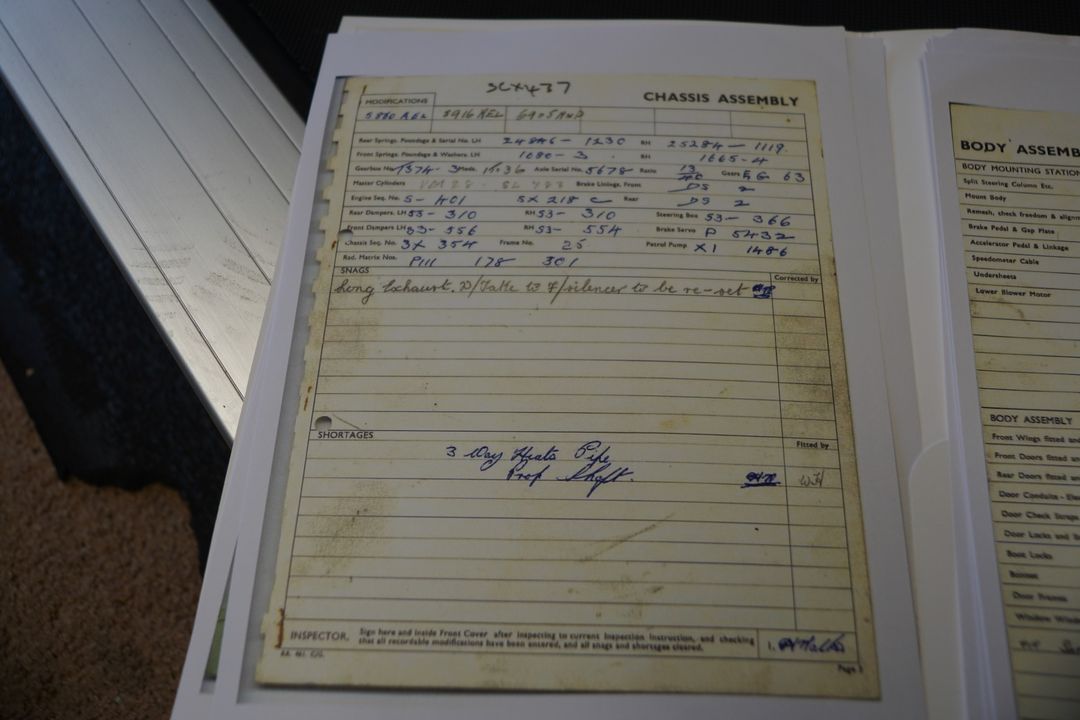 SCX437
CHASSIS ASSEMBLY
MODIFICATIONS
5880 AEL 8916 AEL
Rear Springs. Poundage & Serial No. LH 24846 - 1230 RH 25284 - 1119.
Front Springs. Poundage & Washers. LH 1680 - 3 RH 1665 - 4
Gearbox No. 7374 - 3 Mods. 15.36 Axle Serial No. 5678 Ratio 13 Gears EG 63
Master Cylinders Brake Linings. Front DS 2
Engine Seq. No. 5 - 401 5X 218 C Rear DS 2
Rear Dampers. LH 53 - 310 RH 53 - 310 Steering Box 53 - 366
Front Dampers. LH 53 - 556 RH 53 - 554 Brake Servo P 5432
Chassis Seq. No. 3X 354 Frame No. 25 Petrol Pump X1 1486
Rad. Matrix Nos. P111 178 301
SNAGS Corrected by
Long Exhaust. to F/silencer to be re-set
SHORTAGES Fitted by
3 Way Heater Pipe
Prop Shaft. WH
INSPECTOR. Sign here and inside Front Cover after inspecting to current Inspection Instruction, and checking
that all recordable modifications have been entered, and all snags and shortages cleared. 1.
Page 1
BODY ASSEMB
BODY MOUNTING STATION
Split Steering Column Etc.
Mount Body
Remesh, check freedom & alignm
Brake Pedal & Gap Plate
Accelerator Pedal & Linkage
Speedometer Cable
Undersheets
Lower Blower Motor
BODY ASSEMBLY
Front Wings fitted an
Front Doors fitted an
Rear Doors fitted an
Door Conduits - Ele
Door Check Straps
Door Locks and
Boot Locks
Bonnet
Door Frames
Window Wind